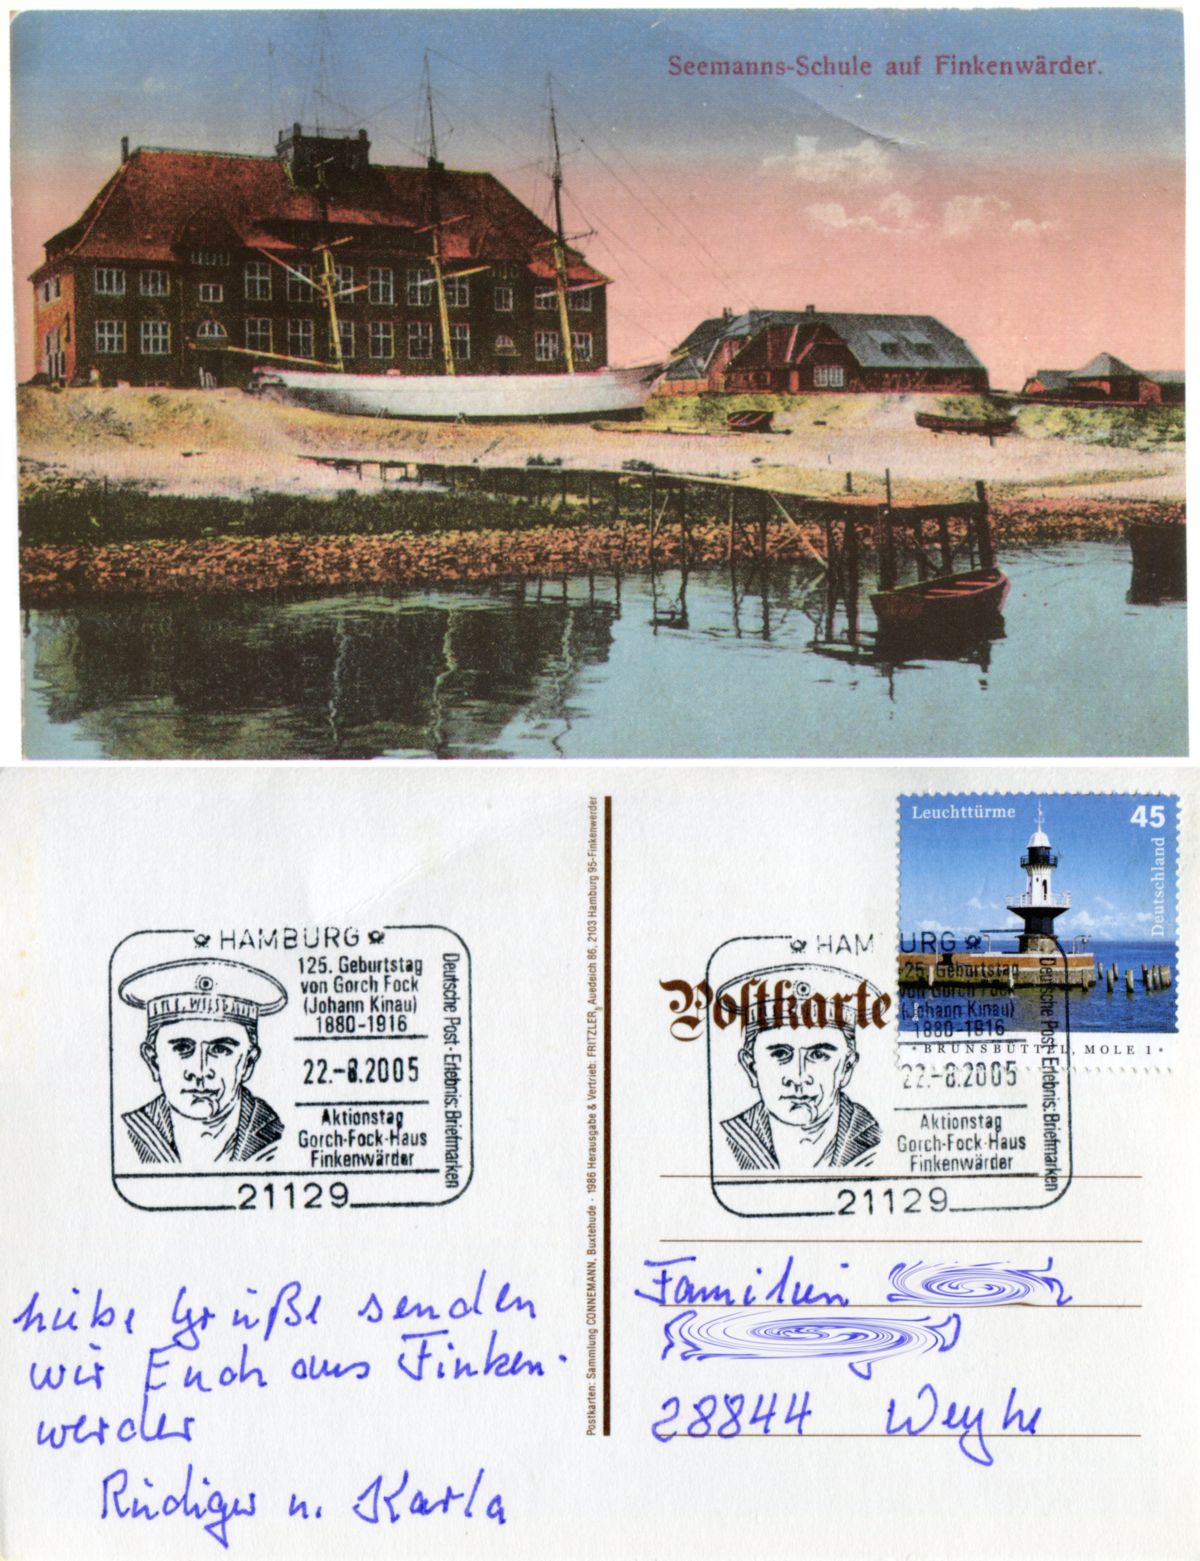 Seemanns-Schule auf Finkenwärder.
HAMBURG
125. Geburtstag
von Gorch Fock
(Johann Kinau)
1880-1916
22.-8.2005
Aktionstag
Gorch-Fock-Haus
Finkenwärder
21129
Deutsche Post · Erlebnis: Briefmarken
Liebe Grüße senden
wir Euch aus Finken-
werder
Rüdiger u. Karla
Postkarten: Sammlung CONNEMANN, Buxtehude · 1986 Herausgabe & Vertrieb: FRITZLER, Auedeich 86, 2103 Hamburg 95-Finkenwerder
Leuchttürme 45
Deutschland
BRUNSBÜTTEL, MOLE 1
Postkarte
HAMBURG
125. Geburtstag
von Gorch Fock
(Johann Kinau)
1880-1916
22.-8.2005
Aktionstag
Gorch-Fock-Haus
Finkenwärder
21129
Deutsche Post · Erlebnis: Briefmarken
Familien
28844 Weyhe